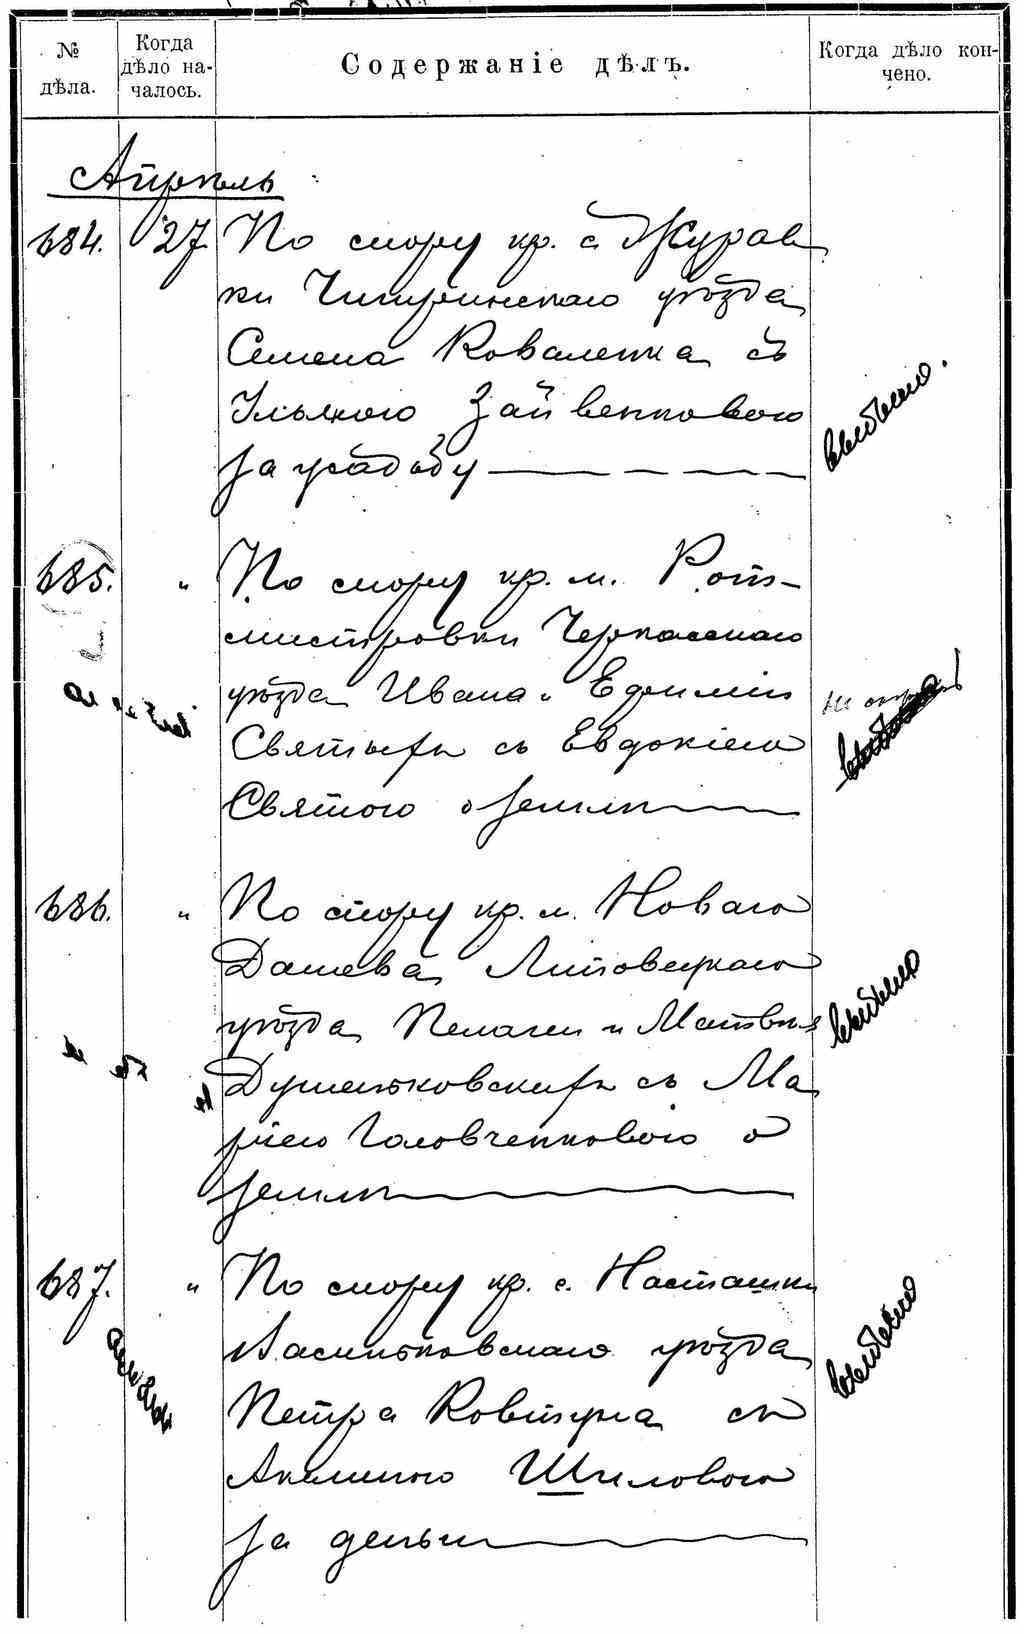 № дѣла.
Когда дѣло на-
чалось.
Содержаніе дѣлъ.
Когда дѣло кон-
чено.
Апрѣль
684. 27 По спору кр. с. Журав
ки Чигиринскаго уѣзда
Семена Коваленка съ
Ульяною Зайвенковою
за усадьбу
685. " По спору кр. м. Рот-
мистровки Черкасскаго
уѣзда Ивана и Ефиміи
Святыхъ съ Евдокіею
Святою о землѣ
686. " По спору кр. м. Новаго
Дашева Липовецкаго
уѣзда Пелагеи и Матвѣя
Душеньковскихъ съ Ма
ріею Головченковою о
землѣ
687. " По спору кр. с. Насташки
Васильковскаго уѣзда
Петра Ковтуна съ
Акилиною Шиловою
за деньги
выбыло.
выбыло
выбыло